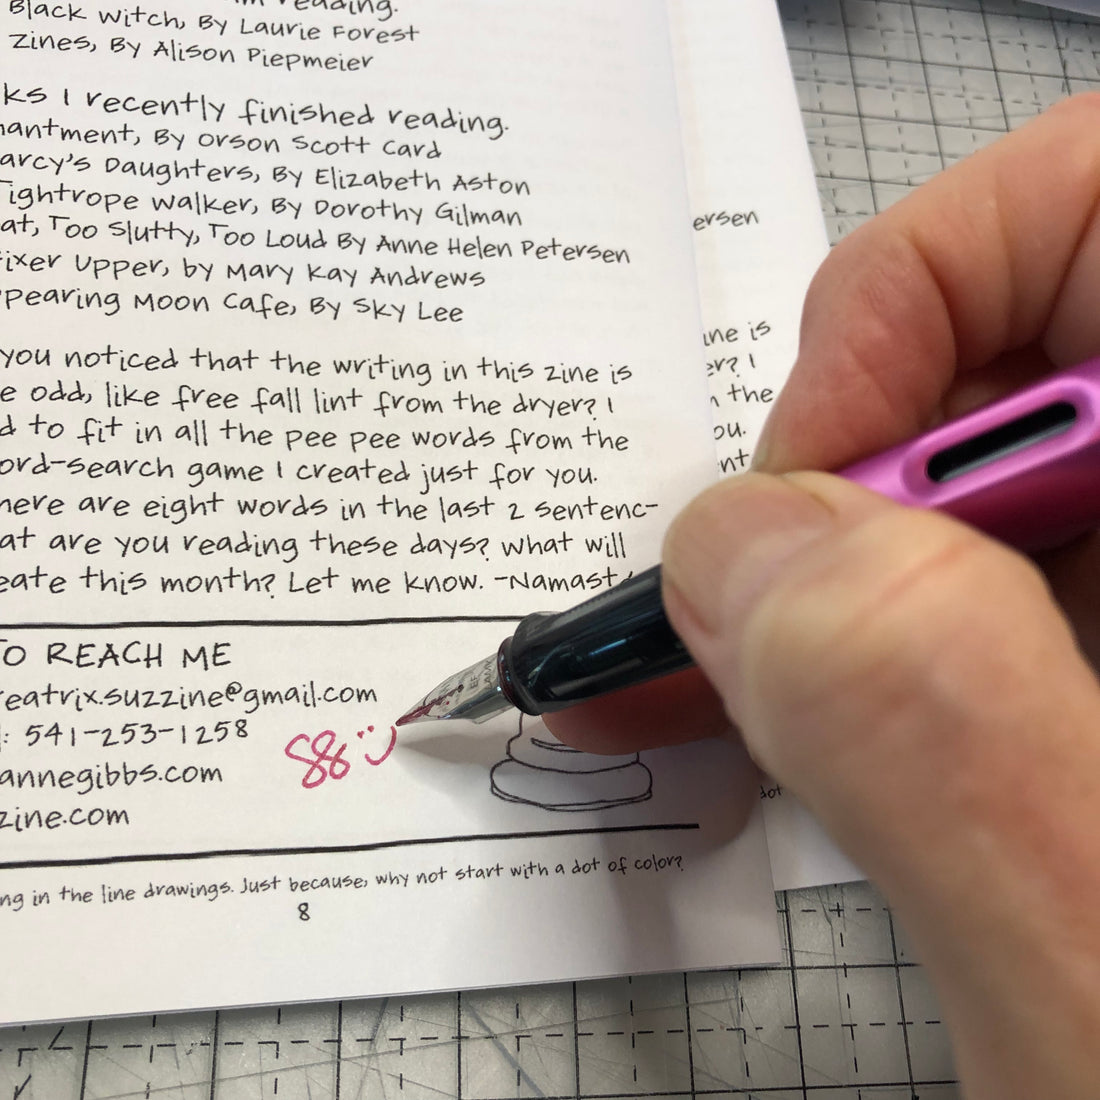 reading.
Black Witch, By Laurie Forest
Zines, By Alison Piepmeier
ks I recently finished reading.
hantment, By Orson Scott Card
arcy's Daughters, By Elizabeth Aston
Tightrope Walker, By Dorothy Gilman
at, Too Slutty, Too Loud By Anne Helen Petersen
Fixer Upper, by Mary Kay Andrews
ppearing Moon Cafe, By Sky Lee
you noticed that the writing in this zine is
e odd, like free fall lint from the dryer? I
d to fit in all the pee pee words from the
ord-search game I created just for you.
here are eight words in the last 2 sentenc-
at are you reading these days? What will
eate this month? Let me know. -Namast
TO REACH ME
reatrix.suzzine@gmail.com
: 541-253-1258
annegibbs.com
zine.com
88
ng in the line drawings. Just because, why not start with a dot of color?
8
ersen
ine is
er? I
n the
ou.
nt
dot
EF
LAMY